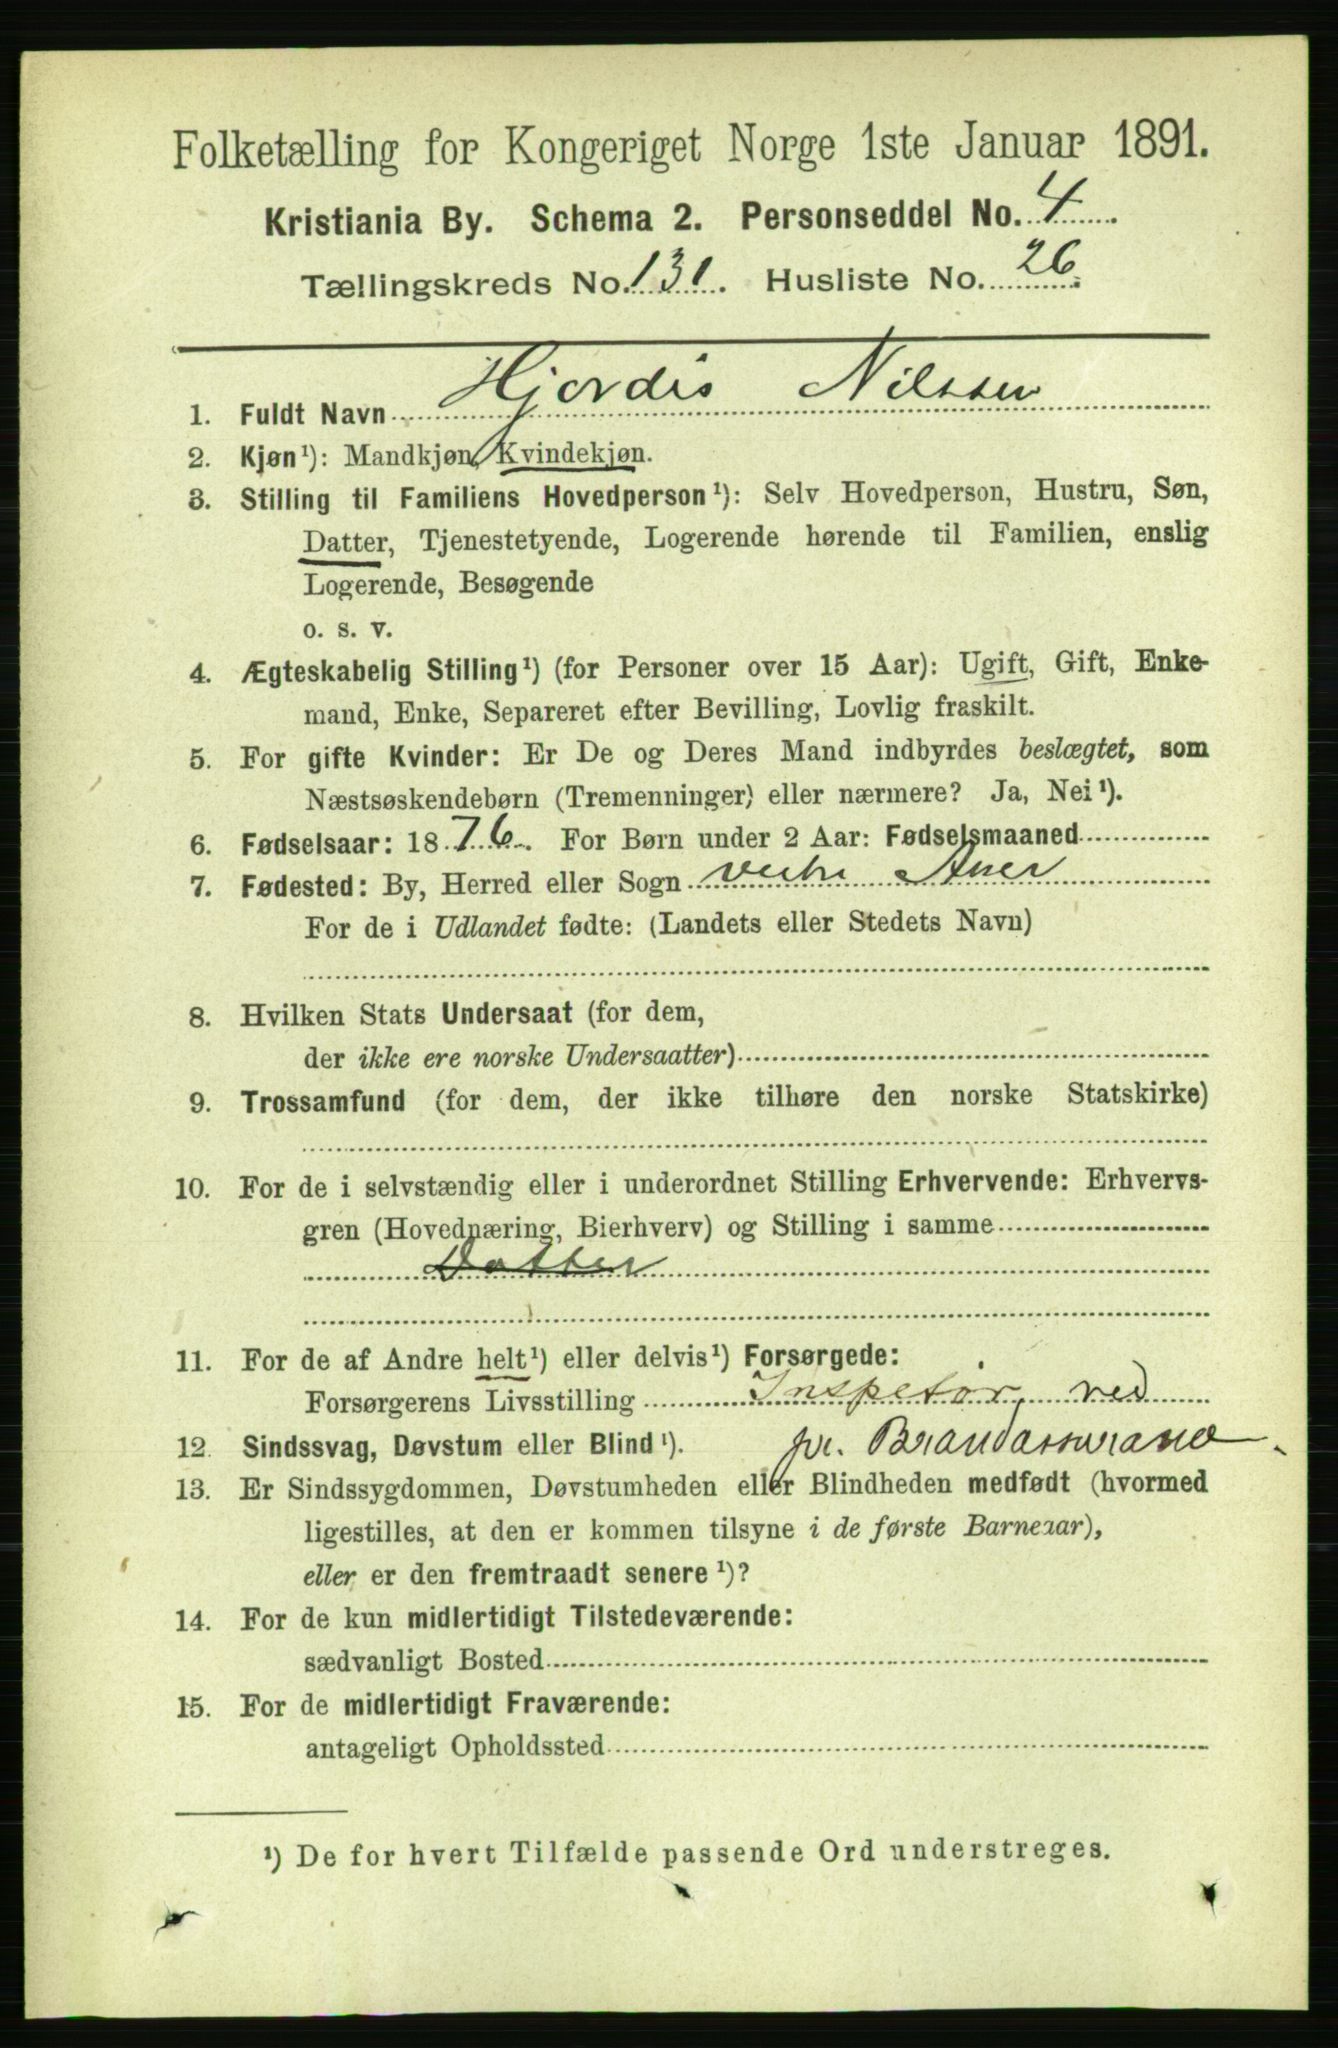 Folketælling for Kongeriget Norge 1ste Januar 1891.
Kristiania By. Schema 2. Personseddel No. 4.
Tællingskreds No. 131. Husliste No. 26.
1. Fuldt Navn Hjordis Nilssen
2. Kjøn¹): Mandkjøn, Kvindekjøn.
3. Stilling til Familiens Hovedperson¹): Selv Hovedperson, Hustru, Søn,
Datter, Tjenestetyende, Logerende hørende til Familien, enslig
Logerende, Besøgende
o. s. v.
4. Ægteskabelig Stilling¹) (for Personer over 15 Aar): Ugift, Gift, Enke-
mand, Enke, Separeret efter Bevilling, Lovlig fraskilt.
5. For gifte Kvinder: Er De og Deres Mand indbyrdes beslægtet, som
Næstsøskendebørn (Tremenninger) eller nærmere? Ja, Nei¹).
6. Fødselsaar: 1876. For Børn under 2 Aar: Fødselsmaaned
7. Fødested: By, Herred eller Sogn vestre Aker
For de i Udlandet fødte: (Landets eller Stedets Navn)
8. Hvilken Stats Undersaat (for dem,
der ikke ere norske Undersaatter)
9. Trossamfund (for dem, der ikke tilhøre den norske Statskirke)
10. For de i selvstændig eller i underordnet Stilling Erhvervende: Erhvervs-
gren (Hovednæring, Bierhverv) og Stilling i samme
Datter
11. For de af Andre helt¹) eller delvis¹) Forsørgede:
Forsørgerens Livsstilling Inspetør ved
12. Sindssvag, Døvstum eller Blind¹). pr.
13. Er Sindssygdommen, Døvstumheden eller Blindheden medfødt (hvormed
ligestilles, at den er kommen tilsyne i de første Barneaar),
eller er den fremtraadt senere¹)?
14. For de kun midlertidigt Tilstedeværende:
sædvanligt Bosted
15. For de midlertidigt Fraværende:
antageligt Opholdssted
¹) De for hvert Tilfælde passende Ord understreges.